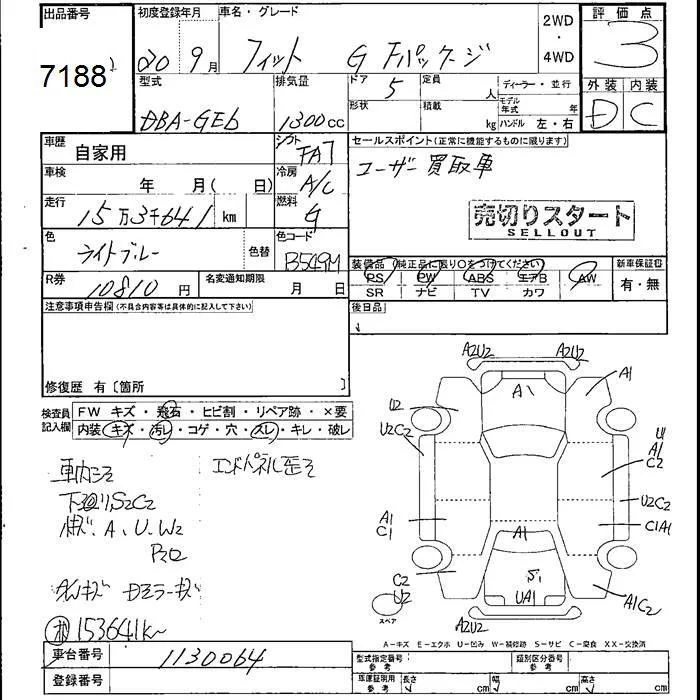 出品番号 初度登録年月 車名・グレード 2WD・4WD 評価点
7188 20 9月 フィット G Fパッケージ 3
型式 排気量 ドア 5 定員 人 ディーラー・並行 外装 内装
DBA-GE6 1300cc 形状 積載 kg モデル年式 年 ハンドル 左・右 D C
車歴 自家用 シフト FAT セールスポイント(正常に機能するものに限ります)
車検 年 月( 日) 冷房 A/C ユーザー買取車
走行 15万3千641km 燃料 G 売切りスタート
SELLOUT
色 ライトブルー 色替 色コード B549M
装備品 純正品に限り○をつけてください 新車保証書
R券 10810円 名変通知期限 月 日 PS PW ABS エアB AW 有・無
SR ナビ TV カワ
注意事項申告欄(不具合内容等は具体的に記入して下さい) 後日品
修復歴 有〔箇所 〕
検査員記入欄 FW キズ・飛石・ヒビ割・リペア跡・×要
内装 キズ・汚レ・コゲ・穴・スレ・キレ・破レ
エンドパネル歪ミ
下廻リS2C2
A、U、W2
Dミラーキズ
153641K
A2U2 A2U2
A1 A1
U2
U2C2 U
A1
C2
U2C2
A1
C1 C1A1
A1
C2
U2 S1
UA1 A1C2
スペア
A2U2
A-キズ E-エクボ U-凹み W-補修跡 S-サビ C-腐食 XX-交換済
車台番号 1130064 型式指定番号 参考 類別区分番号 参考
登録番号 車庫証明用 参考 長さ cm 幅 cm 高さ cm